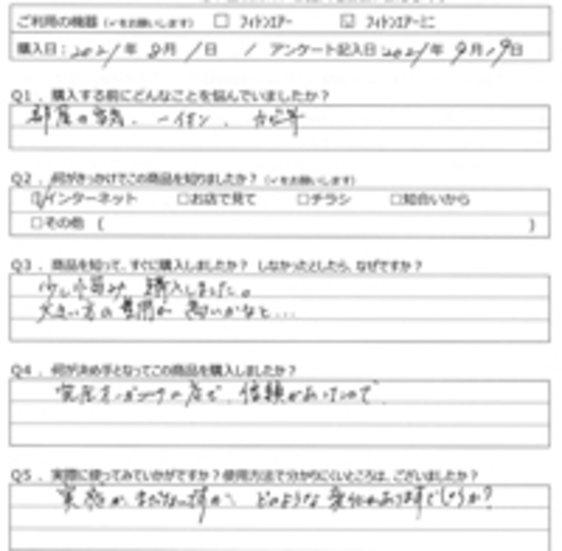 ご利用の機器（✓をお願いします） □ フィトンエアー ☑ フィトンエアーミニ
購入日：2021年 8月 1日 / アンケート記入日 2021年 9月19日
Q1．購入する前にどんなことを悩んでいましたか？
部屋の空気、イオン、カビ等
Q2．何がきっかけでこの商品を知りましたか？（✓をお願いします）
☑インターネット □お店で見て □チラシ □知合いから
□その他（ ）
Q3．商品を知って、すぐに購入しましたか？ しなかったとしたら、なぜですか？
少し悩み、購入しました。
大きい方の費用が高いかなと...
Q4．何が決め手となってこの商品を購入しましたか？
の店で、信頼があったので
Q5．実際に使ってみていかがですか？使用方法で分かりにくいところは、ございましたか？
実感がまだないですが、どのような変化があります でしょうか？